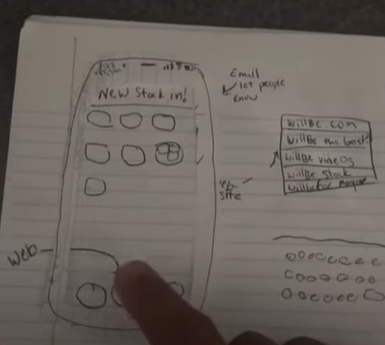 New Stock in!
Email
let people
know
Web
site
willBe.com
willBe the best!
willBe videos
willBe Stock
Web